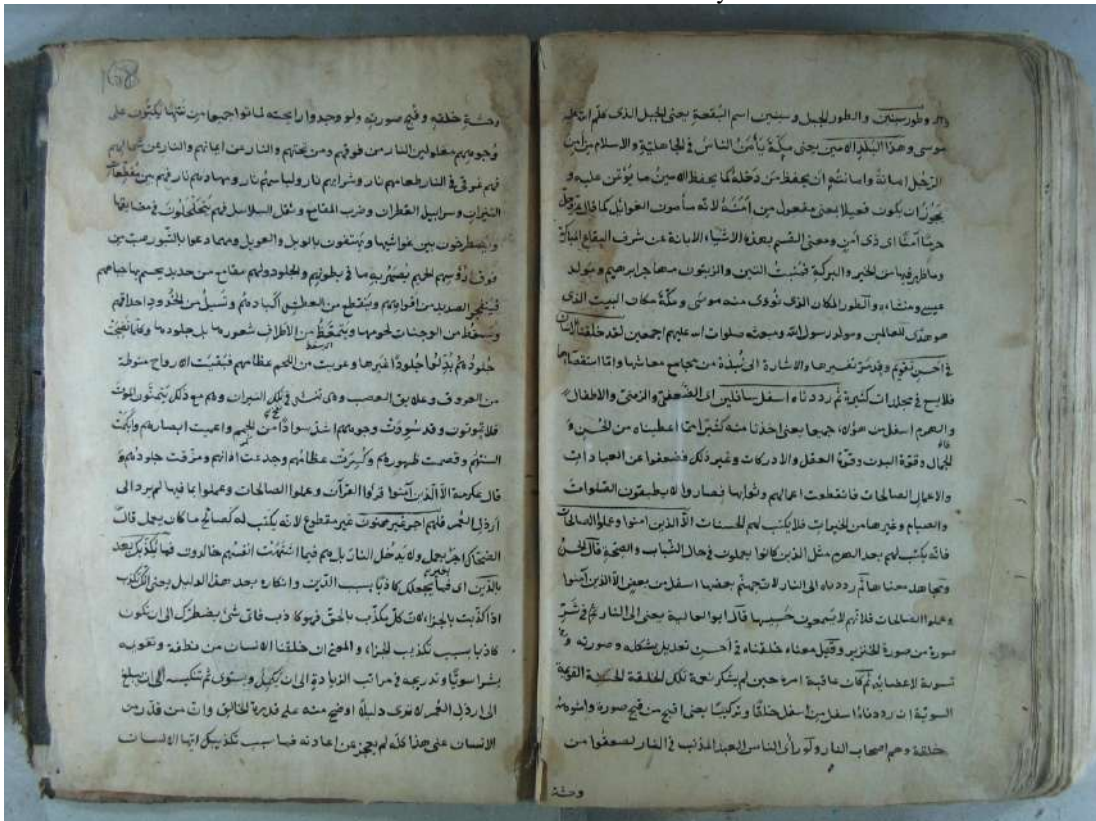 وطور سينين والطور الجبل وسينين اسم البقعة يعنى الجبل الذى كلم الله عليه
موسى وهذا البلد الامين يعنى مكّة يأمن الناس فى الجاهلية والاسلام من امن
الرجل امانة وامانته ان يحفظ من دخله كما يحفظ الامين ما يؤتمن عليه و
يجوز ان يكون فعيلا بمعنى مفعول من امنه لانه مأمون الغوائل كما قال
حرمًا آمنًا اى ذى امن ومعنى القسم بهذه الاشياء الابانة عن شرف البقاع المباركة
وما ظهر فيها من الخير والبركة فمنبت التين والزيتون مهاجر ابرهيم ومولد
عيسى ومنشاه والطور المكان الذى نودى منه موسى ومكّة مكان البيت الذى
هو هدى للعالمين ومولد رسول الله ومبعثه صلوات الله عليهم اجمعين لقد خلقنا الانسان
فى احسن تقويم وقد مرّ تفسيرها والاشارة الى نبذة من مجامع معاشها وامّا استقصاءها
فلا يسع فى مجلدات كثيرة ثم رددناه اسفل سافلين اى الضعفى والزمنى والاطفال
والهرم اسفل من هؤلاء جميعا يعنى اخذنا منه كثيرًا مما اعطيناه من الحسن و
الجمال وقوة البدن وقوة العقل والادراكات وغير ذلك فضعفوا عن العبادات
والاعمال الصالحات فانقطعت اعمالهم وثوابها فصاروا لا يطيقون الصلوات
والصيام وغيرها من الخيرات فلا يكتب لهم الحسنات الّا الذين امنوا وعملوا الصالحات
فانه يكتب لهم بعد الهرم مثل الذين كانوا يعملون فى حال الشباب والصحّة قال الحسن
ومجاهد معناها ثم رددناه الى النار لان جهنّم بعضها اسفل من بعض الّا الذين آمنوا
وعملوا الصالحات فلانهم لا يسمعون حسيسها قال ابو العالية يعنى الى النار فى شرّ
صورة من صورة الخنزير وقيل معناه خلقناه فى احسن تعديل بشكله وصورته و
تسوية لاعضائه ثم كان عاقبة امره حين لم يشكر نعمة تلك الخلقة الحسنة القويمة
السويّة ان رددناه اسفل من اسفل خلقًا وتركيبًا يعنى اقبح من قبح صورة
خلقة وهم اصحاب النار ولو رأى الناس العبد المذنب فى النار لصعقوا من
وحشة
وحشة خلقه وقبح صورته ولو وجدوا رايحته لماتوا جميعا من نتنها يكبّون على
وجوههم مغلولين النار من فوقهم ومن تحتهم والنار عن ايمانهم والنار عن شمائلهم
فهم غرقى فى النار طعامهم نار وشرابهم نار ولباسهم نار ومهادهم نار فهم بين مقطعات
النيران وسرابيل القطران وضرب المقامع وثقل السلاسل فهم يتجلجلون فى مضايقها
ويضطربون بين غواشيها ويهتفون بالويل والعويل ومهما دعوا بالثبور صبّ من
فوق رؤسهم الحميم يصهر به ما فى بطونهم والجلود ولهم مقامع من حديد يحسم بها جباههم
فينفجر الصديد من افواههم وينقطع من العطش اكبادهم وتسيل من الخدود احداقهم
ويسقط من الوجنات لحومها ويتمعّط من الاطراف شعورها بل جلودها وكلما نضجت
جلودهم بدّلوا جلودًا غيرها وعريت من اللحم عظامهم فبقيت الارواح منوطة
من العروق وعلايق العصب وهى تنشّ فى تلك النيران وهم مع ذلك يتمنّون الموت
فلا يموتون وقد سودت وجوههم اشد سوادًا من الحميم واعميت ابصارهم وابكمت
السنتهم وقصمت ظهورهم وكسرت عظامهم وجدعت اذانهم ومزقت جلودهم و
قال عكرمة الّا الذين آمنوا قرؤا القرآن وعملوا الصالحات وعملوا بما فيها لم يرد الى
ارذل العمر فلهم اجر غير ممنون غير مقطوع لانه يكتب له كصالح ما كان يعمل قال
الضحاك اجر بعمل ولا ندخل النار بل هم فيما اشتهت انفسهم خالدون فما يكذبك بعد
بالدّين اى فما يجعلك كاذبا بسبب الدّين وانكاره بعد هذا الدليل يعنى انّك تكذب
اذا كذبت بالجزاء لان كلّ مكذّب بالحقّ فهو كاذب فاىّ شئ يضطرّك الى ان تكون
كاذبا بسبب تكذيب الجزاء والمعنى ان خلقنا الانسان من نطفة وتقويمه
بشرا سويّا وتدريجه فى مراتب الزيادة الى ان يكمل ويستوى ثم تنكيسه الى ان يبلغ
الى ارذل العمر لا ترى دليلا اوضح منه على قدرة الخالق وان من قدر من
الانسان على هذا كلّه لم يعجز عن اعادته فما سبب تكذيبك ايها الانسان